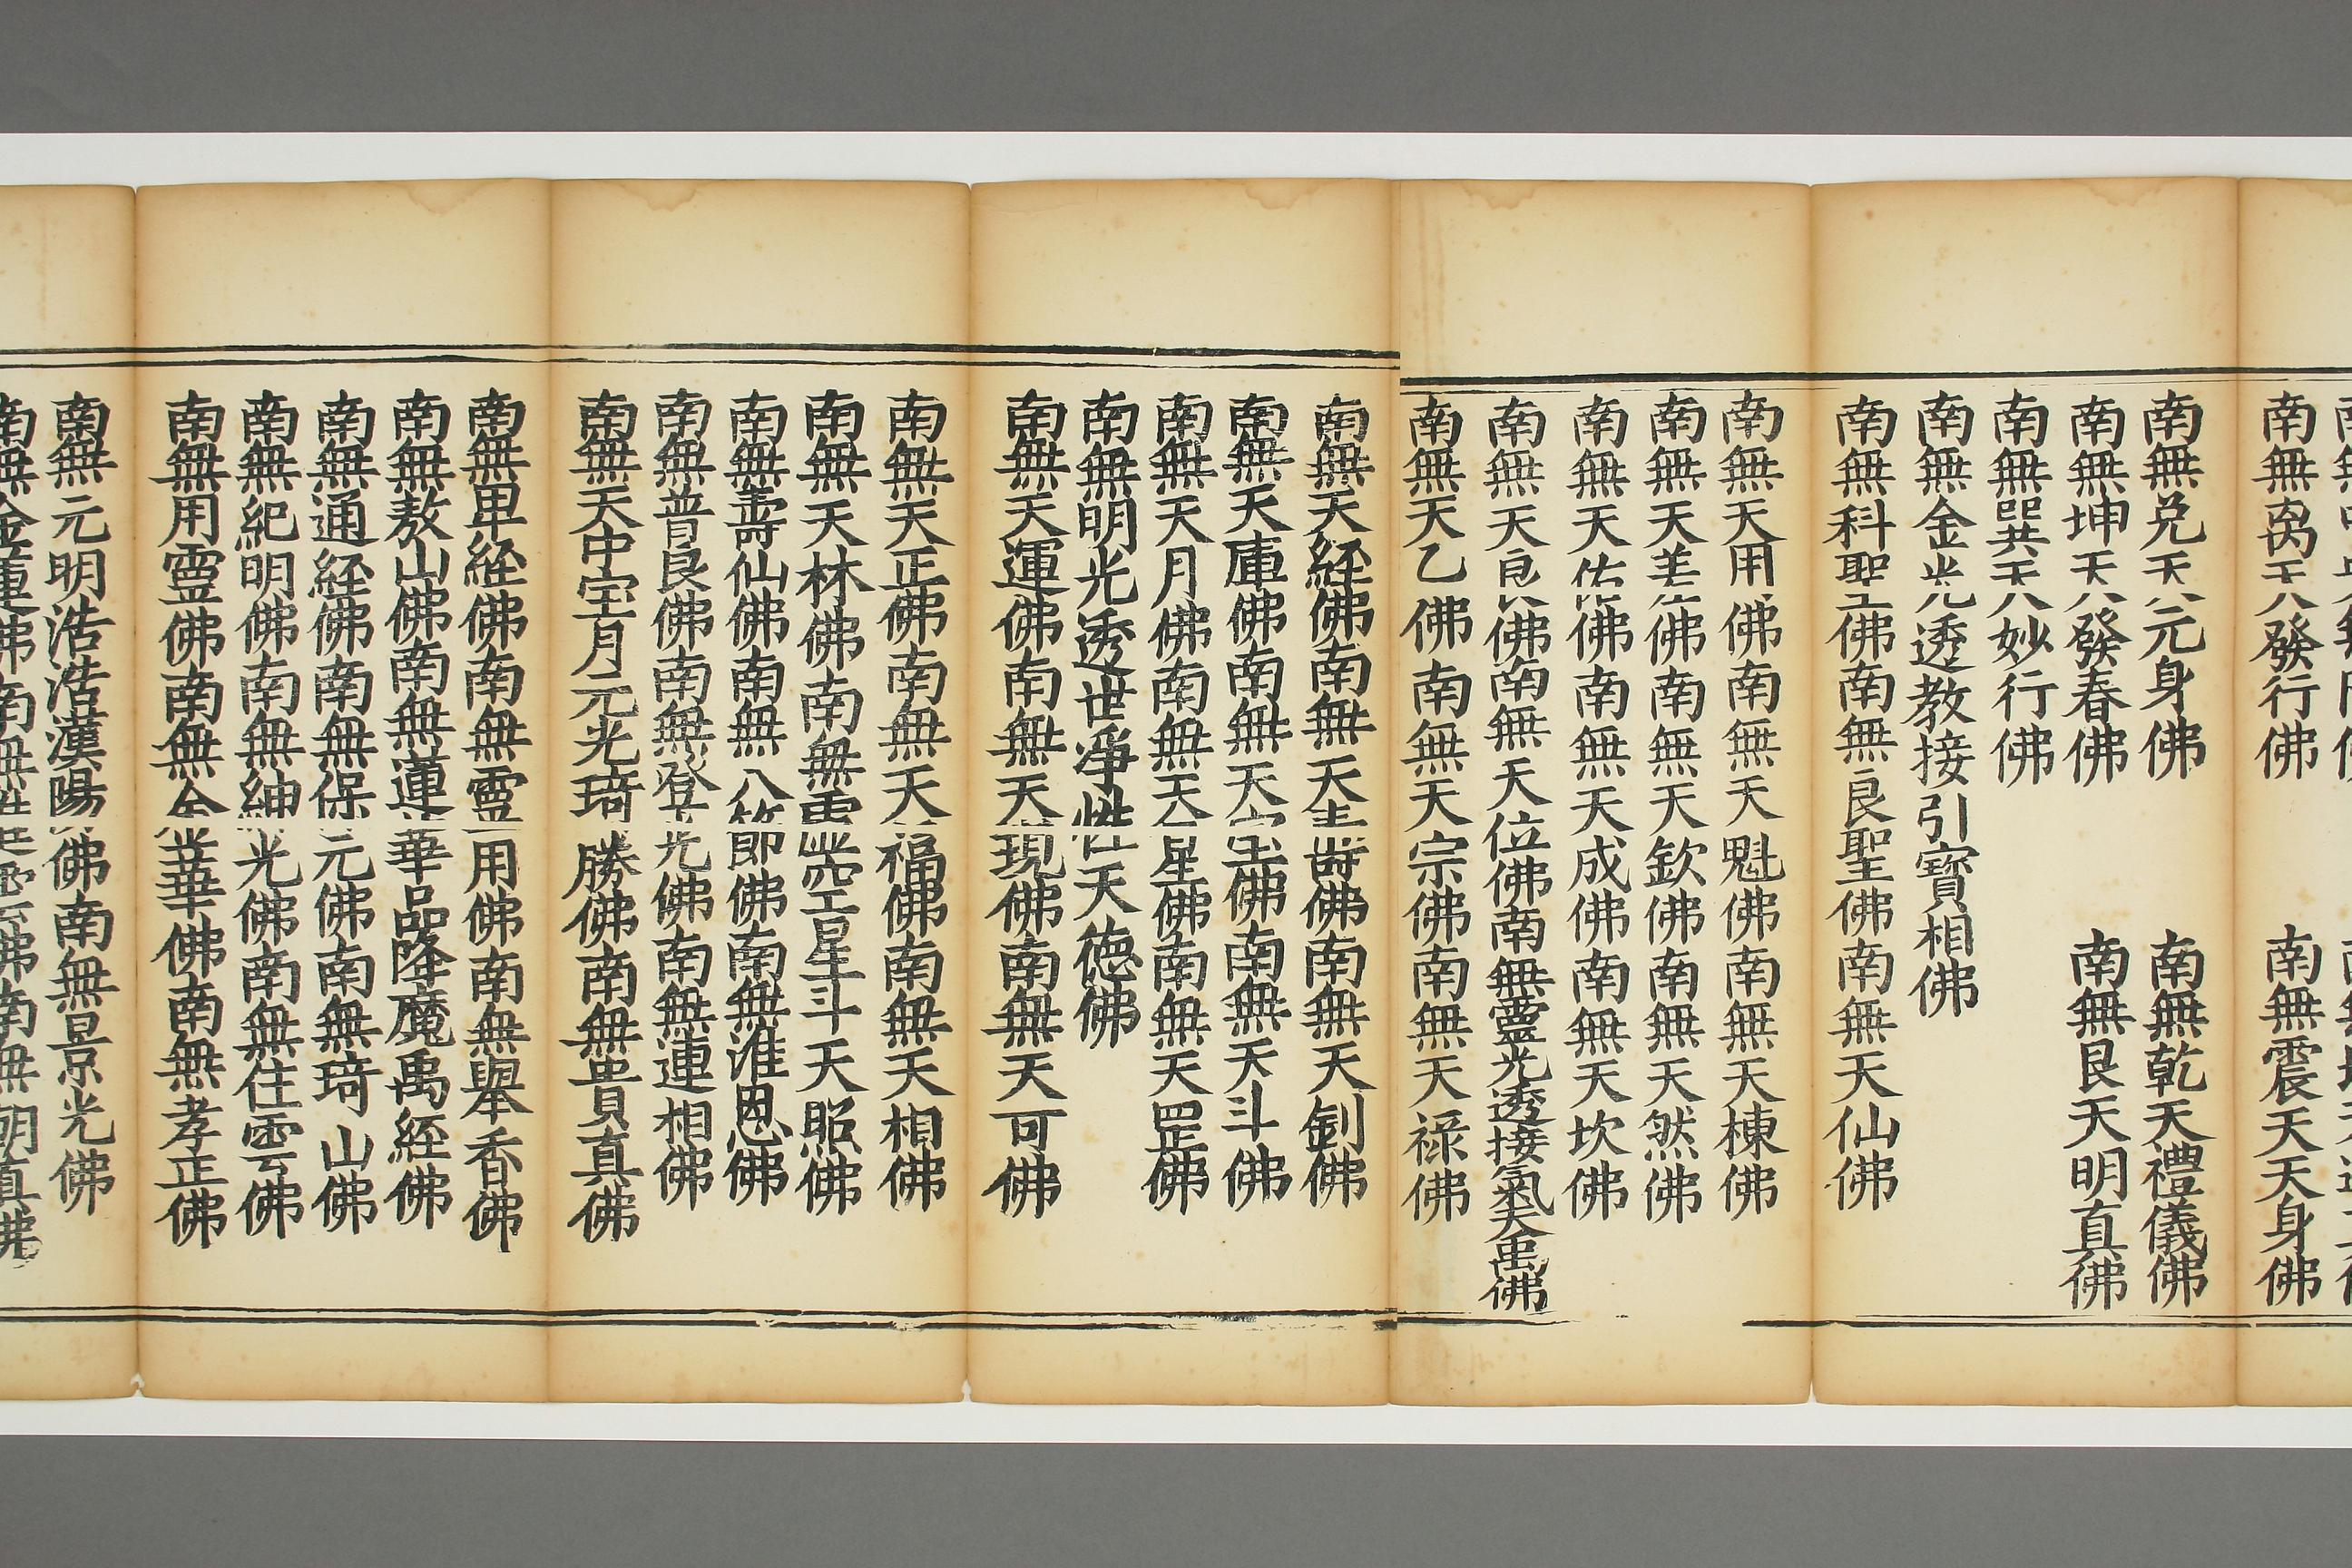 南無离天發行佛 南無震天天身佛
南無兑天元身佛 南無乾天禮儀佛
南無坤天發春佛 南無艮天明直佛
南無巽天妙行佛
南無金光透教接引寶相佛
南無科聖佛南無良聖佛南無天仙佛
南無天用佛南無天魁佛南無天棟佛
南無天美佛南無天欽佛南無天然佛
南無天佑佛南無天成佛南無天坎佛
南無天良佛南無天位佛南無靈光透接氣天禹佛
南無天乙佛南無天宗佛南無天祿佛
南無天經佛南無天佛南無天釗佛
南無天庫佛南無天宝佛南無天斗佛
南無天月佛南無天星佛南無天罡佛
南無明光透世淨性天德佛
南無天運佛南無天現佛南無天可佛
南無天正佛南無天福佛南無天相佛
南無天林佛南無星斗天照佛
南無壽仙佛南無八節佛南無淮恩佛
南無普良佛南無登光佛南無連相佛
南無天中宝月元光琦勝佛南無貴真佛
南無單經佛南無靈用佛南無舉香佛
南無敖山佛南無蓮華品降魔禹經佛
南無通經佛南無保元佛南無琦山佛
南無紀明佛南無紳光佛南無住雲佛
南無用靈佛南無金華佛南無孝正佛
南無元明浩浩漢陽佛南無景光佛
南無金蓮佛南無佛南無明直佛